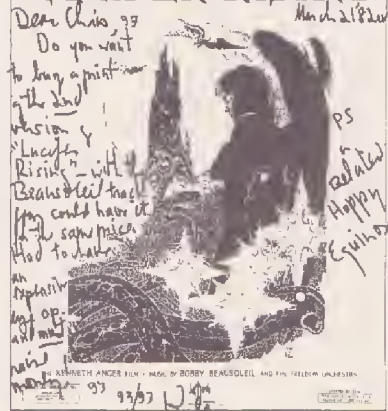 Dear Chris 93
March 21 '82
Do you want
to buy a print
of the 2nd
version of
"Lucifer
Rising" - with
Beausoleil track
you could have it
same price
Had to have
an
and
raise
93
93/93
PS
a
Belated
Happy
Equinox
KENNETH ANGER FILM • MUSIC BY BOBBY BEAUSOLEIL AND THE FREEDOM ORCHESTRA